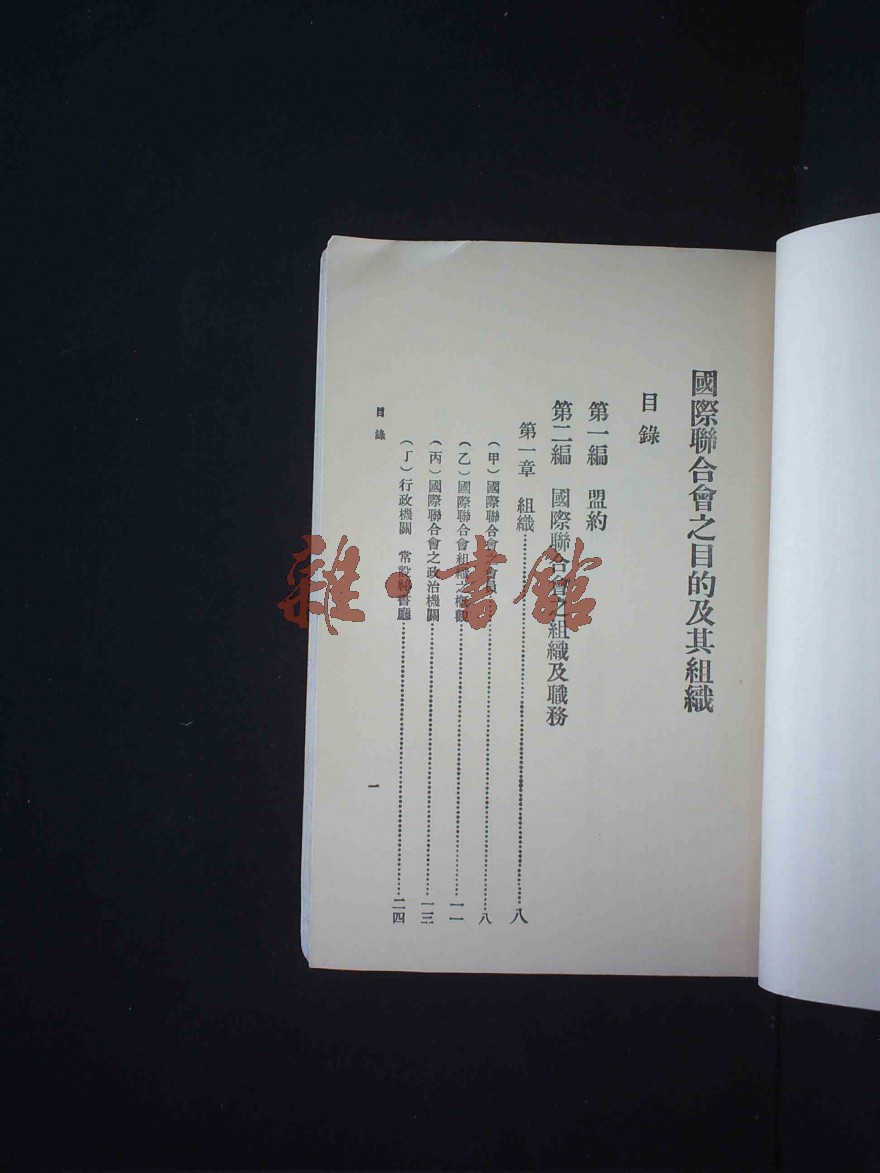 國際聯合會之目的及其組織
目錄
第一編 盟約
第二編 國際聯合會之組織及職務
第一章 組織……八
(甲)國際聯合會之會員……八
(乙)國際聯合會組織之概觀……一一
(丙)國際聯合會之政治機關……一三
(丁)行政機關 常設秘書廳……二四
目錄
一
雜·書館